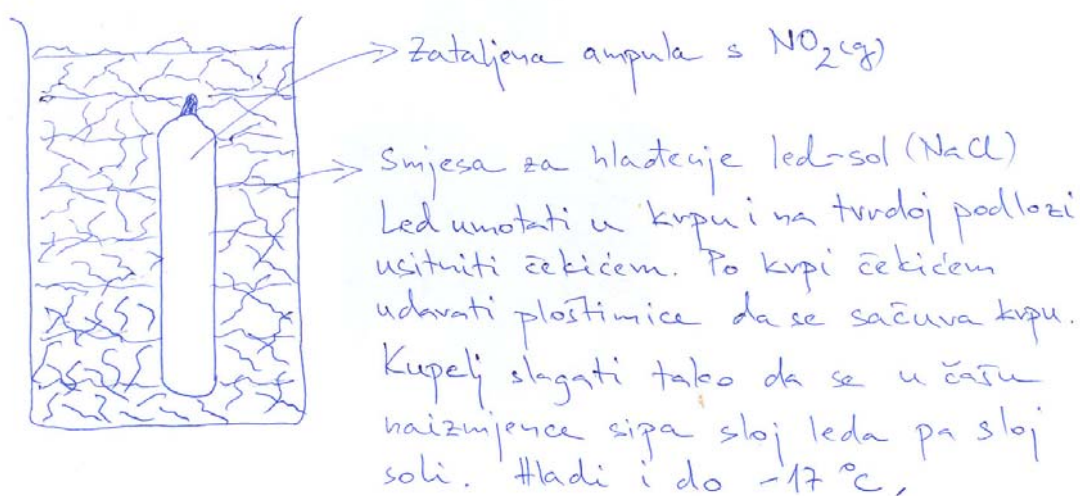 Zataljena ampula s NO₂(g)
Smjesa za hlađenje led-sol (NaCl)
Led umotati u krpu i na tvrdoj podlozi
usitniti čekićem. Po krpi čekićem
udarati ploštimice da se sačuva krpu.
Kupelj slagati tako da se u čašu
naizmjence sipa sloj leda pa sloj
soli. Hladi i do -17 °C,